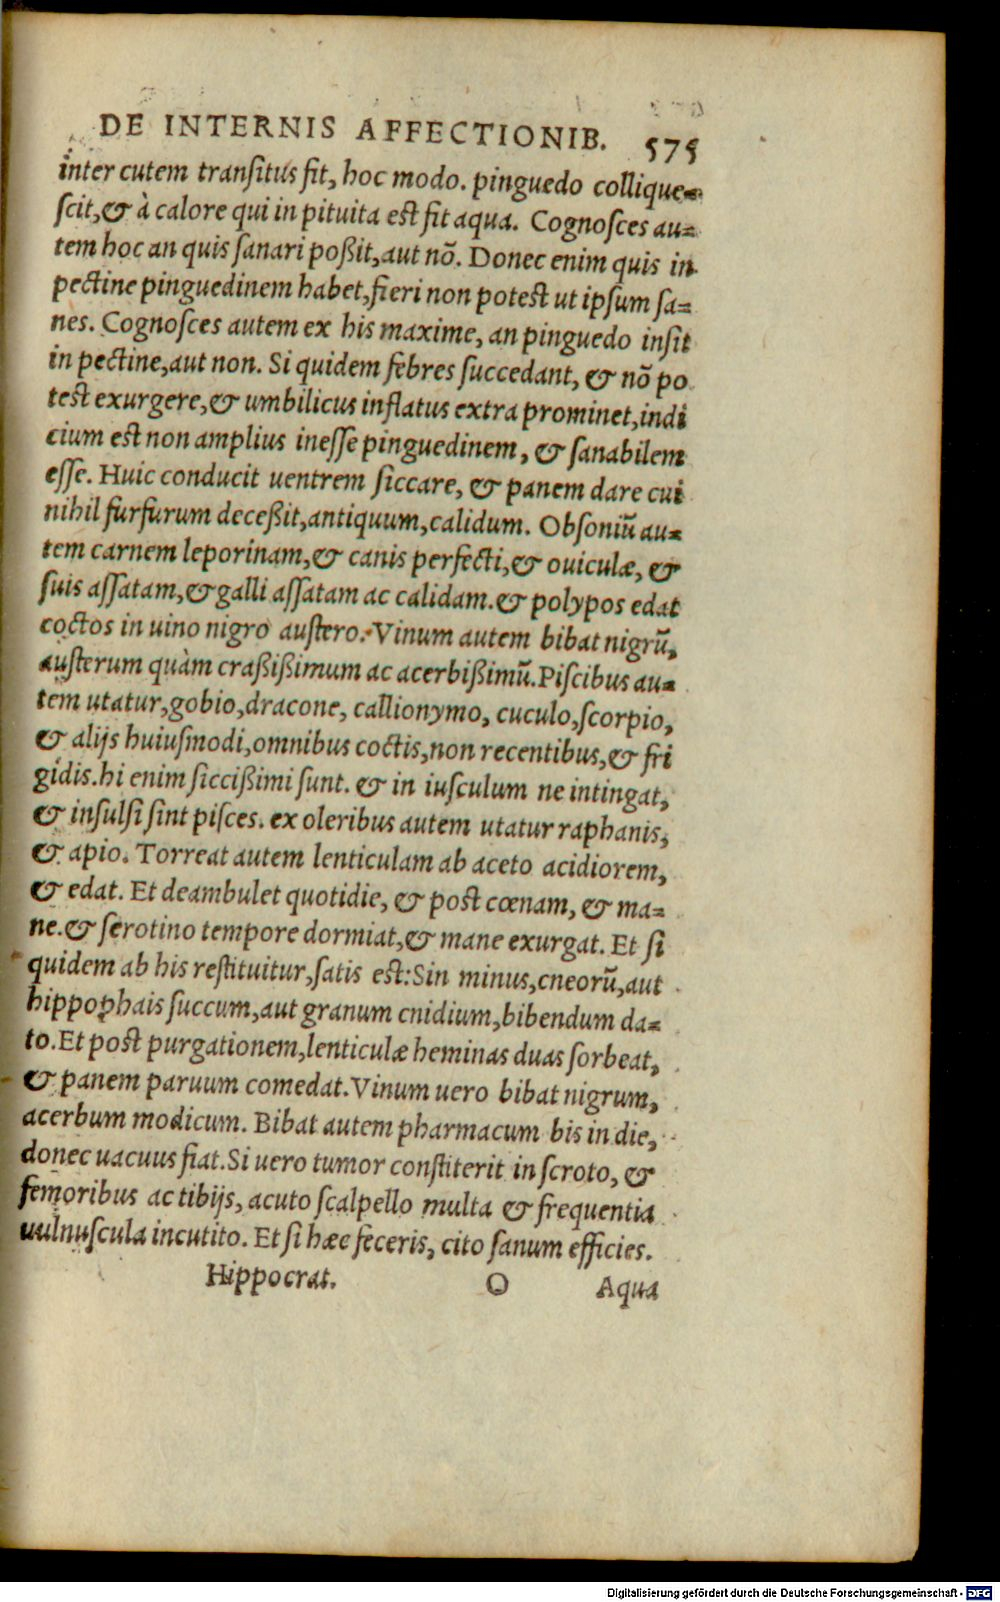 DE INTERNIS AFFECTIONIB. 575
inter cutem transitus fit, hoc modo. pinguedo collique=
scit, & à calore qui in pituita est fit aqua. Cognosces au=
tem hoc an quis sanari poßit, aut nõ. Donec enim quis in
pectine pinguedinem habet, fieri non potest ut ipsum sa=
nes. Cognosces autem ex his maxime, an pinguedo insit
in pectine, aut non. Si quidem febres succedant, & nõ po
test exurgere, & umbilicus inflatus extra prominet, indi
cium est non amplius inesse pinguedinem, & sanabilem
esse. Huic conducit uentrem siccare, & panem dare cui
nihil furfurum deceßit, antiquum, calidum. Obsoniũ au=
tem carnem leporinam, & canis perfecti, & ouiculæ, &
suis assatam, & galli assatam ac calidam. & polypos edat
coctos in uino nigro austero. Vinum autem bibat nigrũ,
austerum quàm craßißimum ac acerbißimũ. Piscibus au=
tem utatur, gobio, dracone, callionymo, cuculo, scorpio,
& alijs huiusmodi, omnibus coctis, non recentibus, & fri
gidis. hi enim siccißimi sunt. & in iusculum ne intingat,
& insulsi sint pisces. ex oleribus autem utatur raphanis,
& apio. Torreat autem lenticulam ab aceto acidiorem,
& edat. Et deambulet quotidie, & post cœnam, & ma=
ne. & serotino tempore dormiat, & mane exurgat. Et si
quidem ab his restituitur, satis est: Sin minus, cneorũ, aut
hippophais succum, aut granum cnidium, bibendum da=
to. Et post purgationem, lenticulæ heminas duas sorbeat,
& panem paruum comedat. Vinum uero bibat nigrum,
acerbum modicum. Bibat autem pharmacum bis in die,
donec uacuus fiat. Si uero tumor constiterit in scroto, &
femoribus ac tibijs, acuto scalpello multa & frequentia
uulnuscula incutito. Et si hæc feceris, cito sanum efficies.
Hippocrat. O Aqua
Digitalisierung gefördert durch die Deutsche Forschungsgemeinschaft - DFG